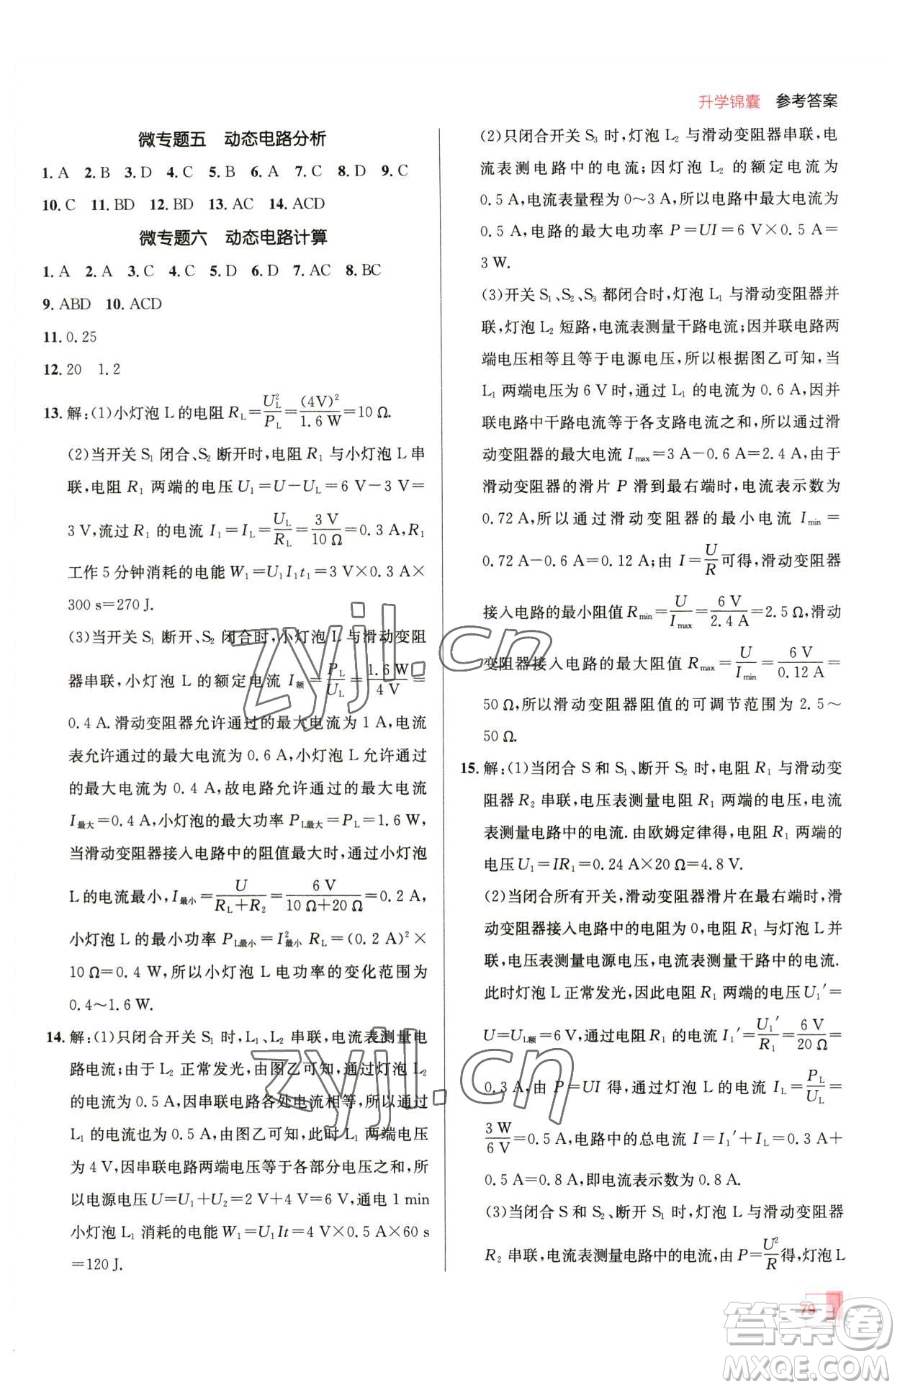 升学锦囊 参考答案
微专题五 动态电路分析
1. A 2. B 3. D 4. C 5. B 6. A 7. C 8. D 9. C
10. C 11. BD 12. BD 13. AC 14. ACD
微专题六 动态电路计算
1. A 2. A 3. C 4. C 5. D 6. D 7. AC 8. BC
9. ABD 10. ACD
11. 0.25
12. 20 1.2
13. 解:(1)小灯泡 L 的电阻 R_L=U_L²/P_L=(4V)²/1.6 W=10 Ω.
(2)当开关 S₁ 闭合、S₂ 断开时,电阻 R₁ 与小灯泡 L 串
联,电阻 R₁ 两端的电压 U₁=U－U_L=6 V－3 V=
3 V,流过 R₁ 的电流 I₁=I_L=U_L/R_L=3 V/10 Ω=0.3 A,R₁
工作 5 分钟消耗的电能 W₁=U₁I₁t₁=3 V×0.3 A×
300 s=270 J.
(3)当开关 S₁ 断开、S₂ 闭合时,小灯泡 L 与滑动变阻
器串联,小灯泡 L 的额定电流 I额=P_L/U_L=1.6 W/4 V=
0.4 A.滑动变阻器允许通过的最大电流为 1 A,电流
表允许通过的最大电流为 0.6 A,小灯泡 L 允许通过
的最大电流为 0.4 A,故电路允许通过的最大电流
I最大=0.4 A,小灯泡的最大功率 P_L最大=P_L=1.6 W.
当滑动变阻器接入电路中的阻值最大时,通过小灯泡
L 的电流最小,I最小=U/(R_L+R₂)=6 V/(10 Ω+20 Ω)=0.2 A,
小灯泡 L 的最小功率 P_L最小=I²最小 R_L=(0.2 A)²×
10 Ω=0.4 W,所以小灯泡 L 电功率的变化范围为
0.4～1.6 W.
14. 解:(1)只闭合开关 S₁ 时,L₁、L₂ 串联,电流表测量电
路电流;由于 L₂ 正常发光,由图乙可知,通过灯泡 L₂
的电流为 0.5 A,因串联电路各处电流相等,所以通过
L₁ 的电流也为 0.5 A,由图乙可知,此时 L₁ 两端电压
为 4 V,因串联电路两端电压等于各部分电压之和,所
以电源电压 U=U₁+U₂=2 V+4 V=6 V,通电 1 min
小灯泡 L₁ 消耗的电能 W₁=U₁It=4 V×0.5 A×60 s
=120 J.
(2)只闭合开关 S₃ 时,灯泡 L₂ 与滑动变阻器串联,电
流表测电路中的电流;因灯泡 L₂ 的额定电流为
0.5 A,电流表量程为 0～3 A,所以电路中的最大电流
为 0.5 A,电路的最大电功率 P=UI=6 V×0.5 A=
3 W.
(3)开关 S₁、S₂、S₃ 都闭合时,灯泡 L₁ 与滑动变阻器并
联,灯泡 L₂ 短路,电流表测量干路电流;因并联电路两
端电压相等且等于电源电压,所以根据图乙可知,当
L₁ 两端电压为 6 V 时,通过 L₁ 的电流为 0.6 A,因并
联电路中干路电流等于各支路电流之和,所以通过滑
动变阻器的最大电流 I_max=3 A－0.6 A=2.4 A;由于
滑动变阻器的滑片 P 滑到最右端时,电流表示数为
0.72 A,所以通过滑动变阻器的最小电流 I_min=
0.72 A－0.6 A=0.12 A;由 I=U/R可得,滑动变阻器
接入电路的最小阻值 R_min=U/I_max=6 V/2.4 A=2.5 Ω,滑动
变阻器接入电路的最大阻值 R_max=U/I_min=6 V/0.12 A=
50 Ω,所以滑动变阻器阻值的可调节范围为 2.5～
50 Ω.
15. 解:(1)当闭合 S 和 S₁、断开 S₂ 时,电阻 R₁ 与滑动变
阻器 R₂ 串联,电压表测量电阻 R₁ 两端的电压,电流
表测量电路中的电流.由欧姆定律得,电阻 R₁ 两端的
电压 U₁=IR₁=0.24 A×20 Ω=4.8 V.
(2)当闭合所有开关,滑动变阻器滑片在最右端时,滑
动变阻器接入电路中的电阻为 0,电阻 R₁ 与灯泡 L 并
联,电压表测量电源电压,电流表测量干路中的电流.
此时灯泡 L 正常发光,因此电阻 R₁ 两端的电压 U₁′=
U=U_L额=6 V,通过电阻 R₁ 的电流 I₁′=U₁′/R₁=6 V/20 Ω=
0.3 A,由 P=UI 得,通过灯泡 L 的电流 I_L=P_L/U_L=
3 W/6 V=0.5 A,电路中的总电流 I=I₁′+I_L=0.3 A+
0.5 A=0.8 A,即电流表示数为 0.8 A.
(3)当闭合 S 和 S₂、断开 S₁ 时,灯泡 L 与滑动变阻器
R₂ 串联,电流表测量电路中的电流,由 P=U²/R得,灯泡 L
79
zyjl.cn
zyjl.cn
答案圈
MXQE.COM